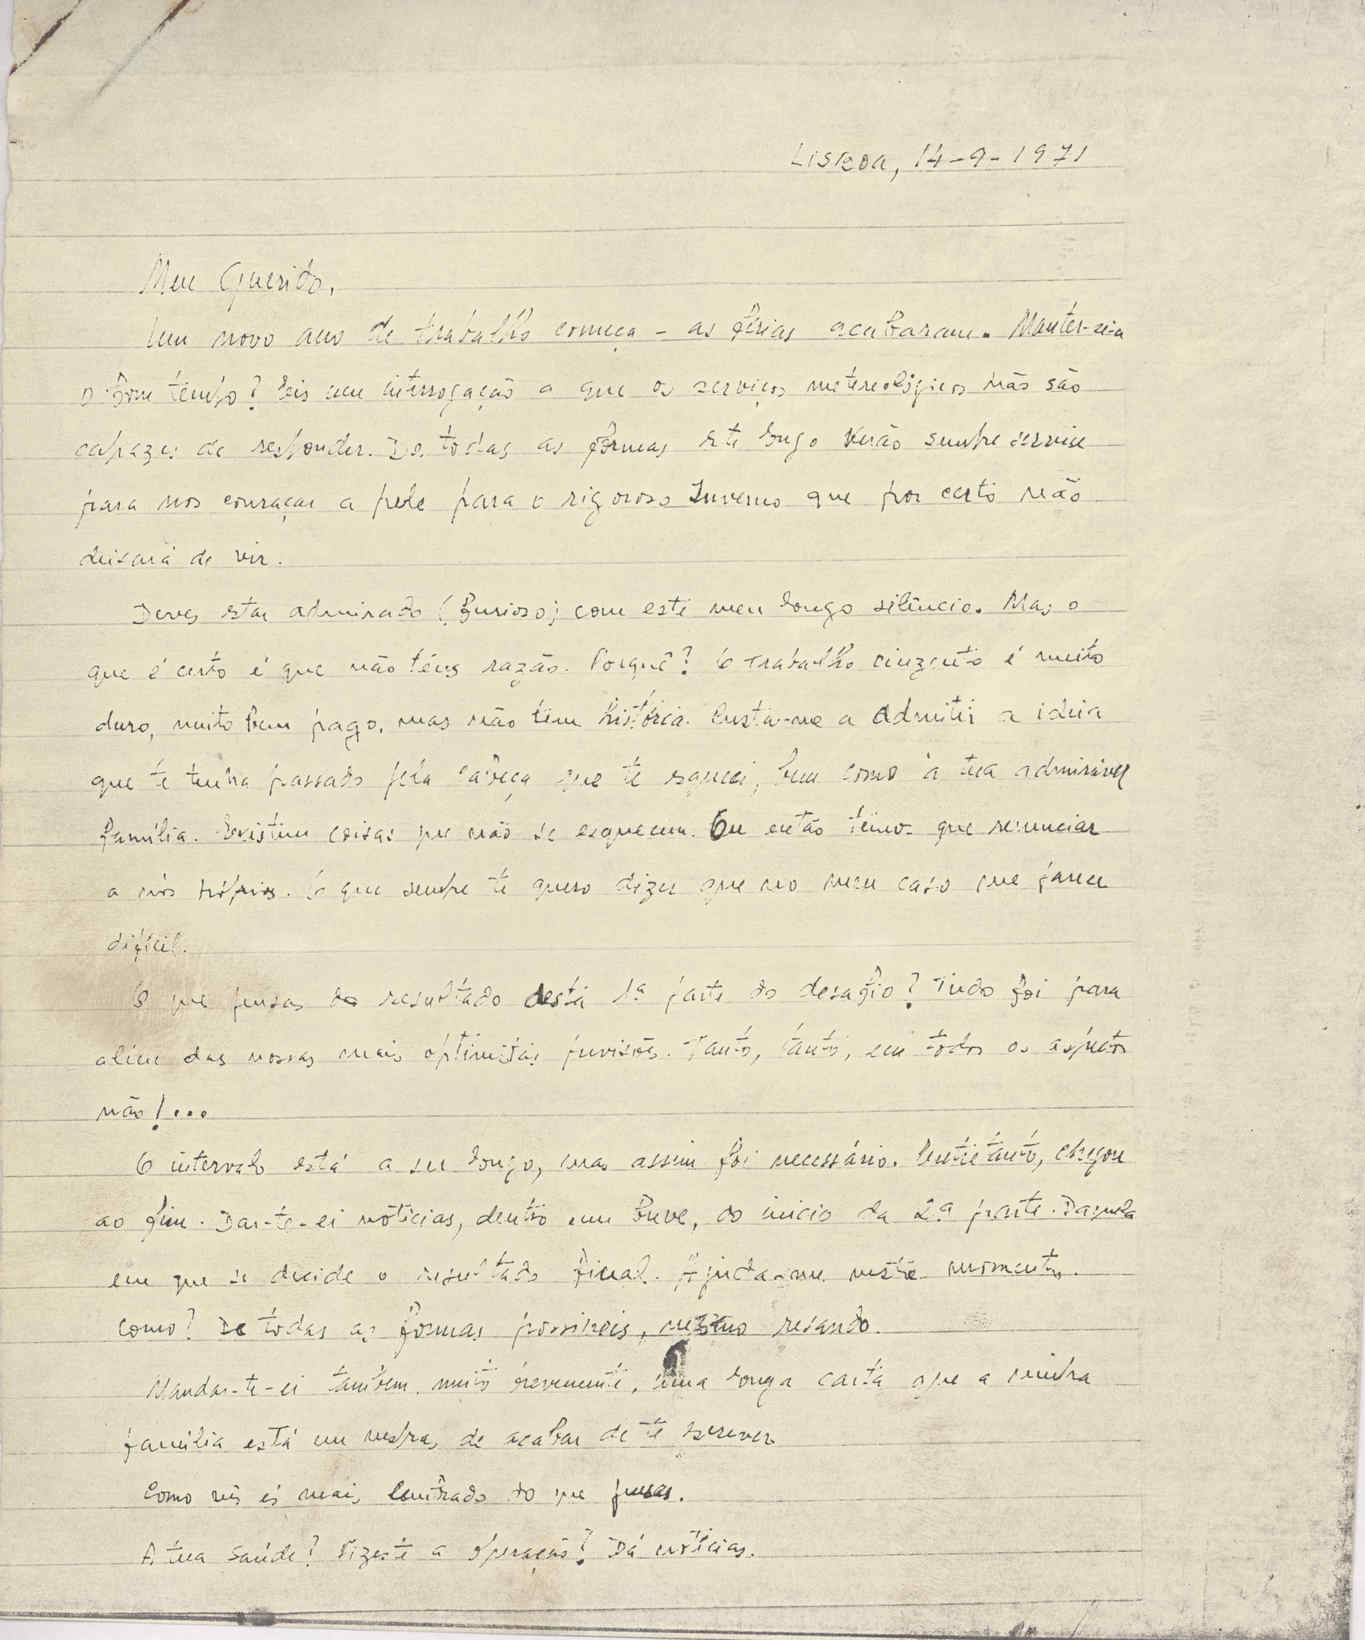 Lisboa, 14-9-1971
Meu Querido,
Um novo ano de trabalho começa - as férias acabaram. Manter-se-á
o bom tempo? Eis um interrogação a que os serviços metereológicos não são
capazes de responder. De todas as formas este longo verão sempre serviu
para nos couraçar a pele para o rigoroso Inverno que por certo não
deixará de vir.
Deves estar admirado (furioso) com este meu longo silêncio. Mas o
que é certo é que não tens razão. Porquê? O trabalho cinzento é muito
duro, muito bem pago, mas não têm história. Custa-me a admitir a ideia
que te tenha passado pela cabeça que te esqueci, bem como à tua admirável
família. Existem coisas que não se esquecem. Ou então temos que renunciar
a nós próprios. O que sempre te quero dizer que no meu caso me parece
difícil.
O que pensas do resultado desta 1ª parte do desafio? Tudo foi para
além das nossas mais optimistas previsões. Tanto, tanto, em todos os aspectos
não!...
O intervalo está a ser longo, mas assim foi necessário. Entretanto, chegou
ao fim. Dar-te-ei notícias, dentro em breve, do início da 2ª parte. Daquela
em que se decide o resultado final. Ajuda-me neste momento.
Como? De todas as formas possíveis, mesmo resando.
Mandar-te-ei também, muito brevemente, uma longa carta que a minha
família está em vespras de acabar de te escrever
Como vês és mais lembrado do que pensas.
A tua saúde? Fizeste a operação? Dá notícias.